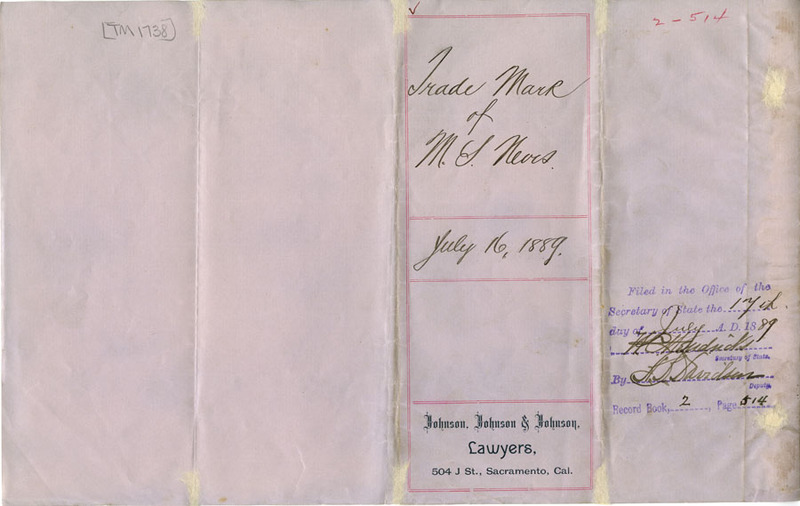 [TM 1738]
Trade Mark
of
M. S. Nevis.
July 16, 1889.
Johnson, Johnson & Johnson,
Lawyers,
504 J St., Sacramento, Cal.
2-514
Filed in the Office of the
Secretary of State the 17th
day of July A. D. 1889
W C Hendricks
Secretary of State.
By Davidson
Deputy.
Record Book, 2, Page 514